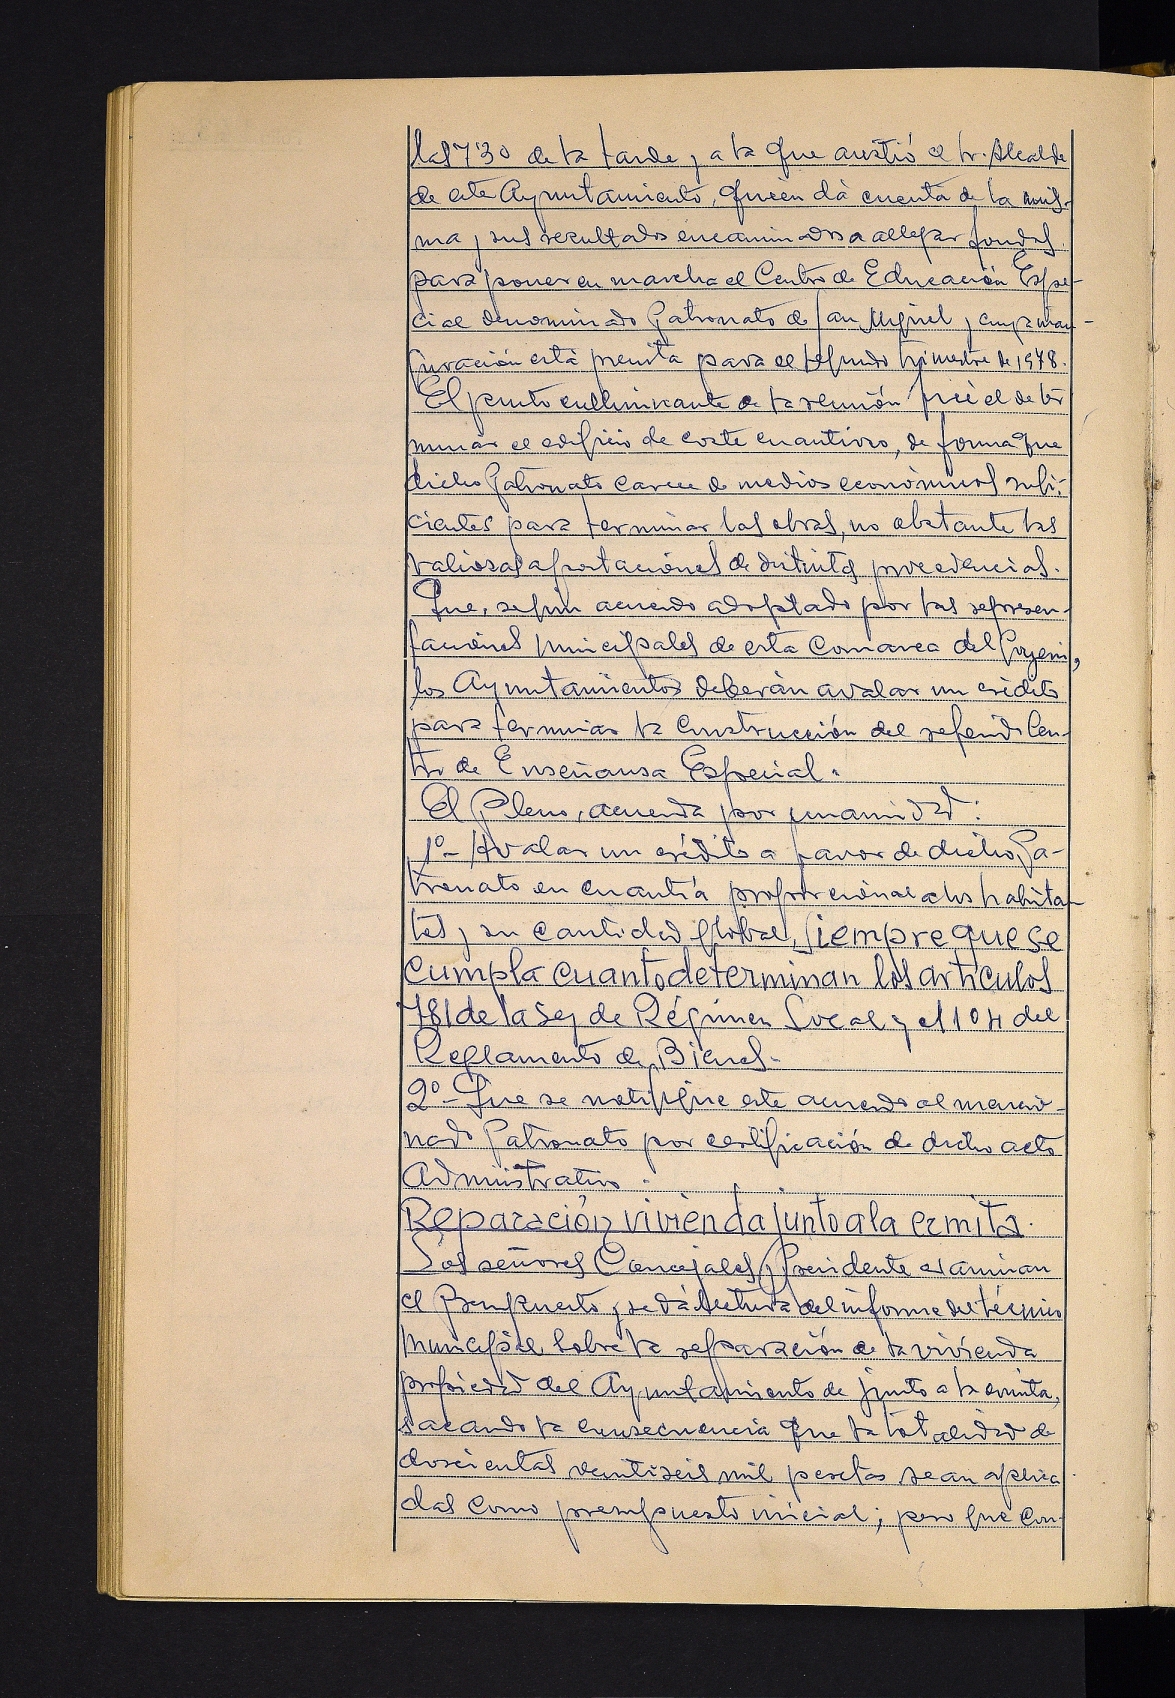 las 7'30 de la tarde, a la que asistió el Sr. Alcalde
de este Ayuntamiento, quien dá cuenta de la mis-
ma y sus resultados encaminados a allegar fondos
para poner en marcha el Centro de Educación Espe-
cial denominado Patronato de San Miguel y cuya inau-
guración está prevista para el segundo trimestre de 1978.
El punto culminante de la reunión fué el de ter
minar el edificio de coste cuantioso, de forma que
dicho Patronato carece de medios económicos sufi-
cientes para terminar las obras, no obstante las
valiosas aportaciones de distintas procedencias.
Que, según acuerdo adoptado por las represen-
taciones municipales de esta Comarca del Goyerri,
los Ayuntamientos deberán avalar un crédito
para terminar la construcción del referido Cen-
tro de Enseñansa Especial.
El Pleno, acuerda por unanimidad:
1º- Avalar un crédito a favor de dicho Pa-
tronato en cuantía proporcional a los habitan-
tes y su cantidad global, siempre que se
cumpla cuanto determinan los artículos
781 de la Ley de Régimen Local y el 104 del
Reglamento de Bienes.-
2º- Que se notifique este acuerdo al mencio-
nado Patronato por certificación de dicho acto
administrativo.
Reparación vivienda junto a la ermita.
Los señores Concejales y Presidente examinan
el Presupuesto, se dá lectura del informe del técnico
municipal sobre la reparación de la vivienda
propiedad del Ayuntamiento de junto a la ermita,
sacando la consecuencia que la totalidad de
doscientas veintiseis mil pesetas sean aplica
das como presupuesto inicial; pero que con-